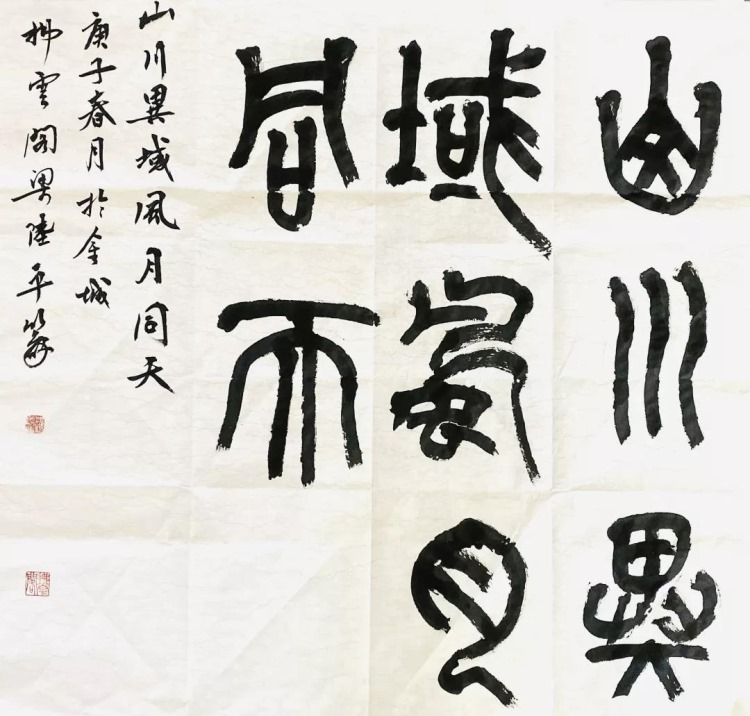 山川異
域風月
同天
山川異域風月同天
庚子春月於金城
拂雲閣梁陸平篆